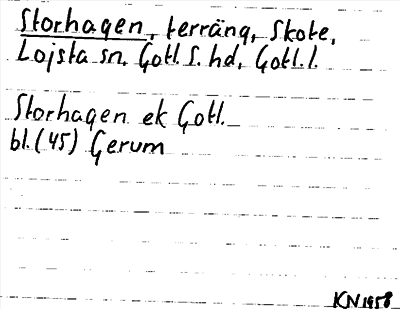 Storhagen, terräng, Skote,
Lojsta sn, Gotl. S. hd, Gotl. l.
Storhagen ek Gotl.
bl. (45) Gerum
KN 1958